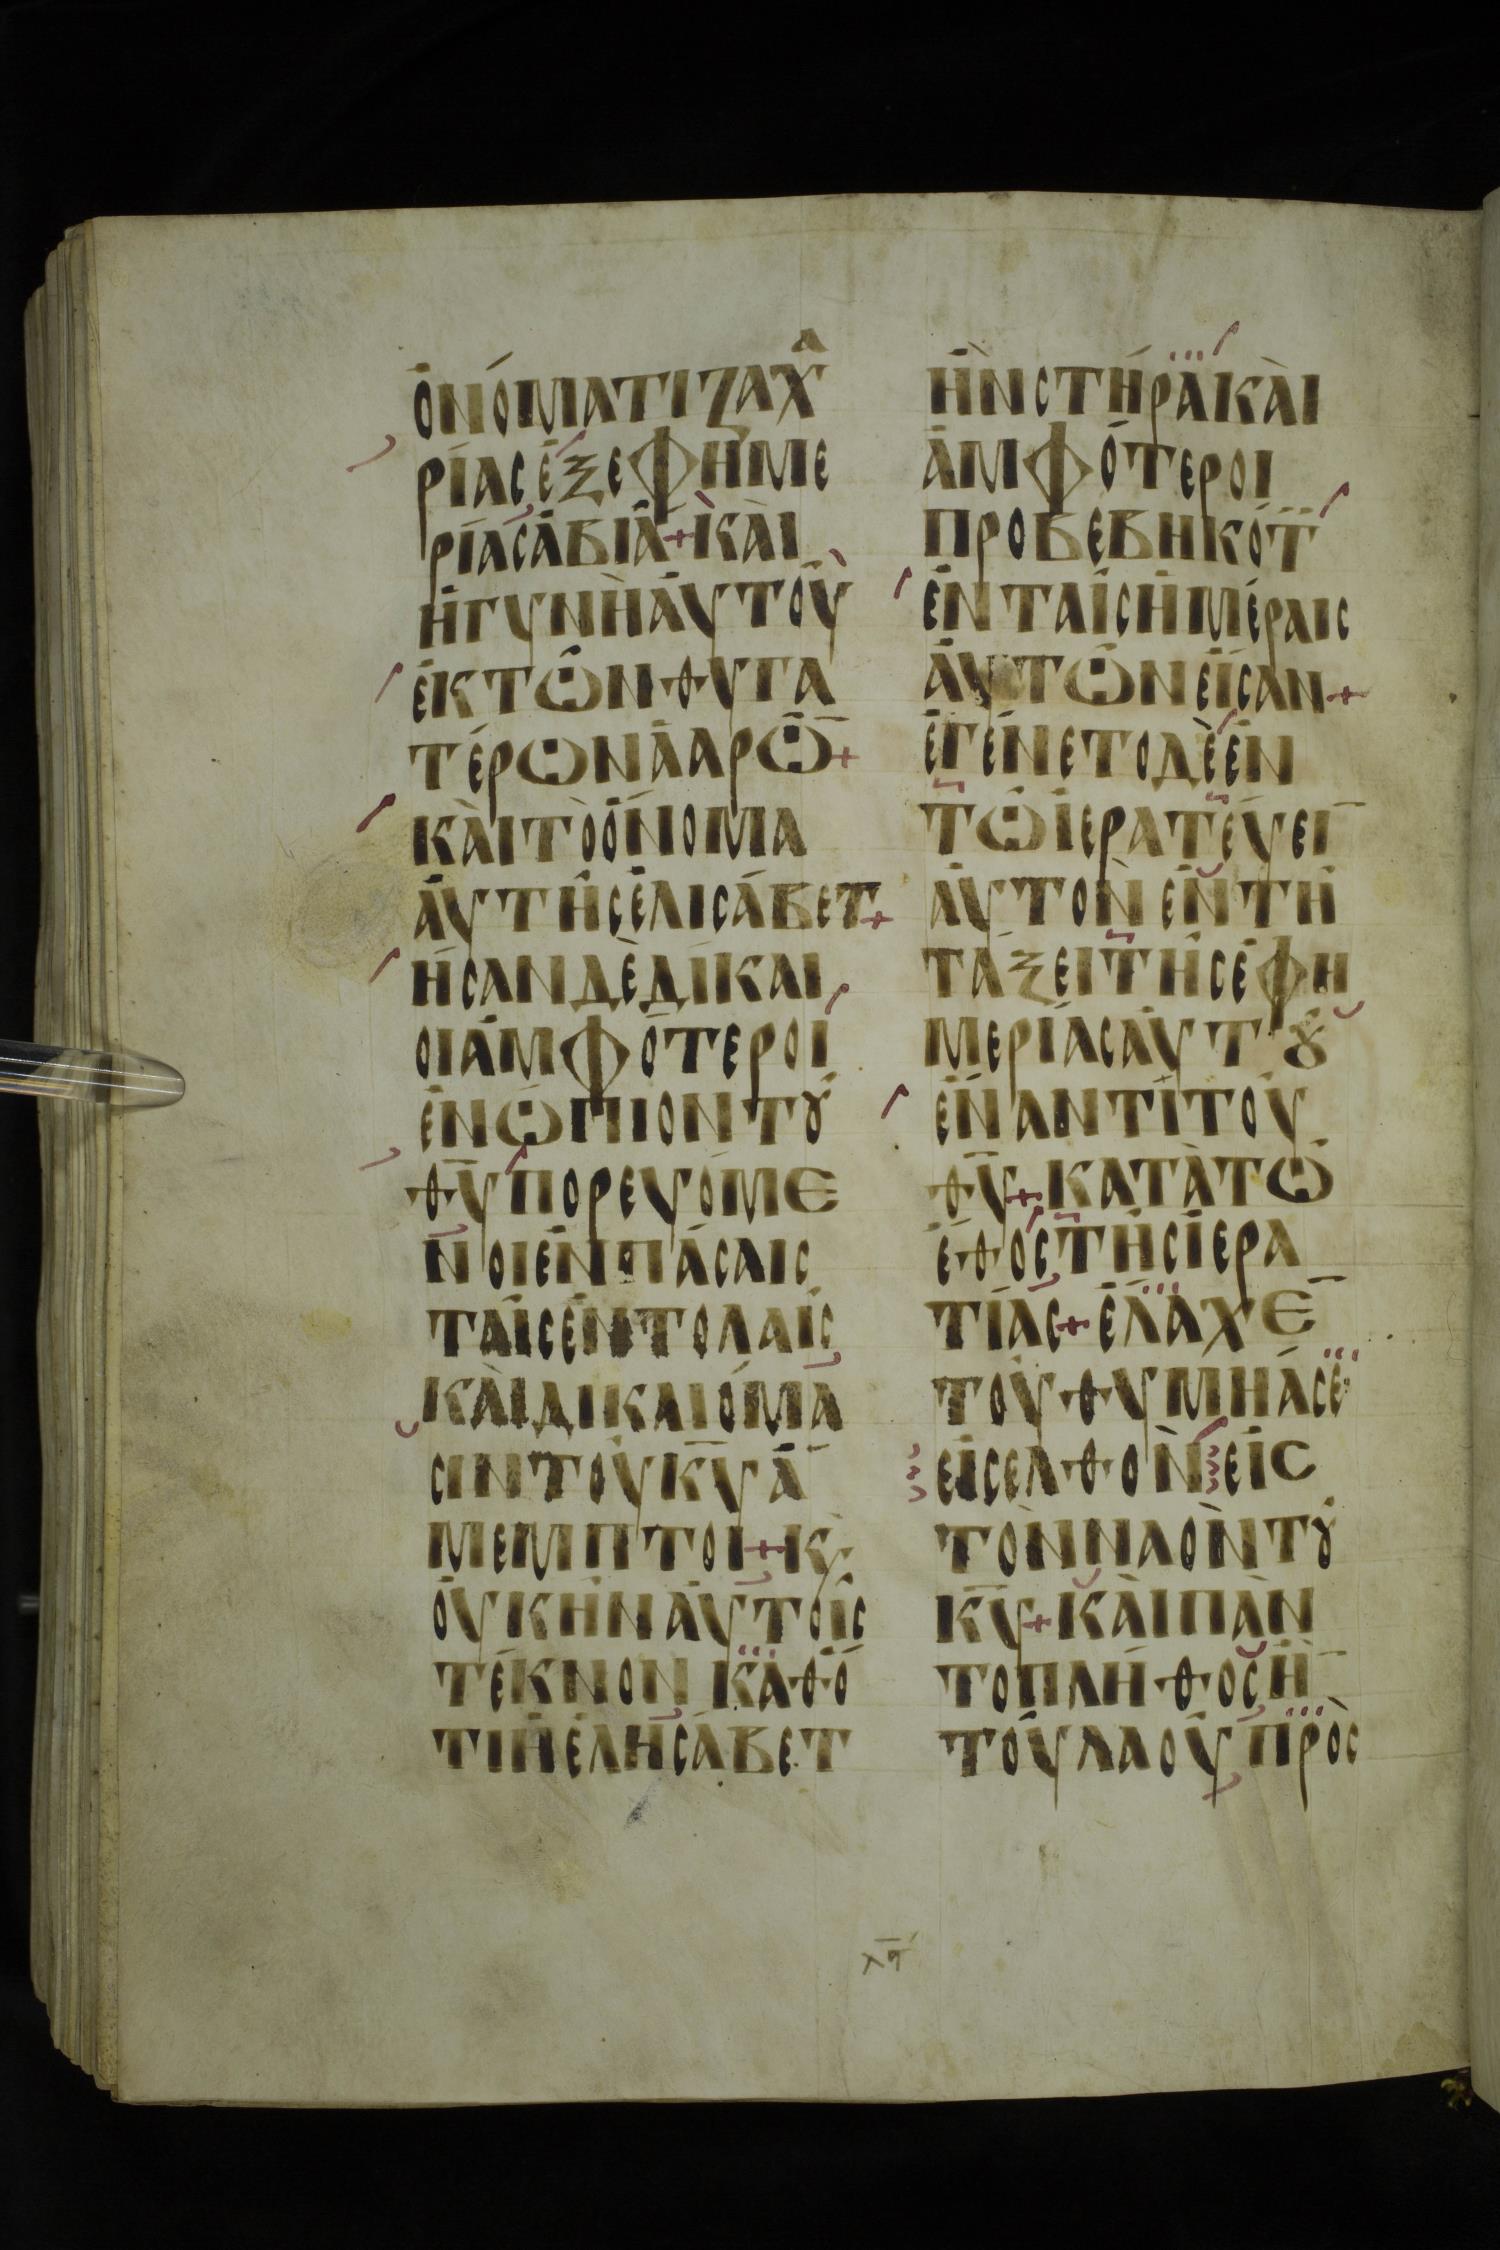 ὀνόματι ζαχα
ρίας ἐξ ἐφημε
ρίας ἀβιὰ + καὶ
ἡ γυνὴ ἀυτοῦ
ἐκ τῶν θυγα
τέρων ἀαρῶ̅ +
καὶ τὸ ὄνομα
ἀυτῆς ἐλισάβετ +
ἦσαν δὲ δίκαι
οι ἀμφότεροι
ἐνώπιον τȣ
θ̅υ̅ πορευόμε
νοι ἐν πάσαις
ταῖς ἐντολαῖς
καὶ δικαιόμα
σιν τοῦ κ̅υ̅ ἄ
μεμπτοι + κ̀
οὐκ ἦν ἀυτοῖς
τέκνον καθό
τι ἡ ἐλησάβετ
ἦν στήρα καὶ
ἀμφότεροι
προβεβηκότ̅
ἐν ταῖς ἡμέραις
ἀυτῶν εἶσαν +
ἐγένετο δὲ ἐν
τῶ ἱερατεύει̅
ἀυτὸν ἐν τῆ
τάξει τῆς ἐφη
μερίας ἀυτȣ
ἔναντι τοῦ
θ̅υ̅ + κατὰ τῶ
ἔθος τῆς ἱερα
τίας + ἔλαχε̅
τοῦ θυμηάσε
εἰσελθὸν εἰς
τὸν ναὸν τȣ
κ̅υ̅ + καὶ πὰν
το πλήθος ἦ̅
τοῦ λαοῦ πρὸς